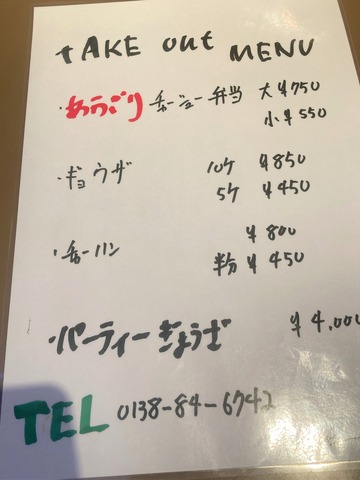 tAKE out MENU
・あらごり チャージュー弁当 大 ¥750
小 ¥550
・ギョウザ 10ケ ¥850
5ケ ¥450
¥800
・チャーハン 半分 ¥450
・パーティーぎょうざ ¥4,000
TEL 0138-84-6742